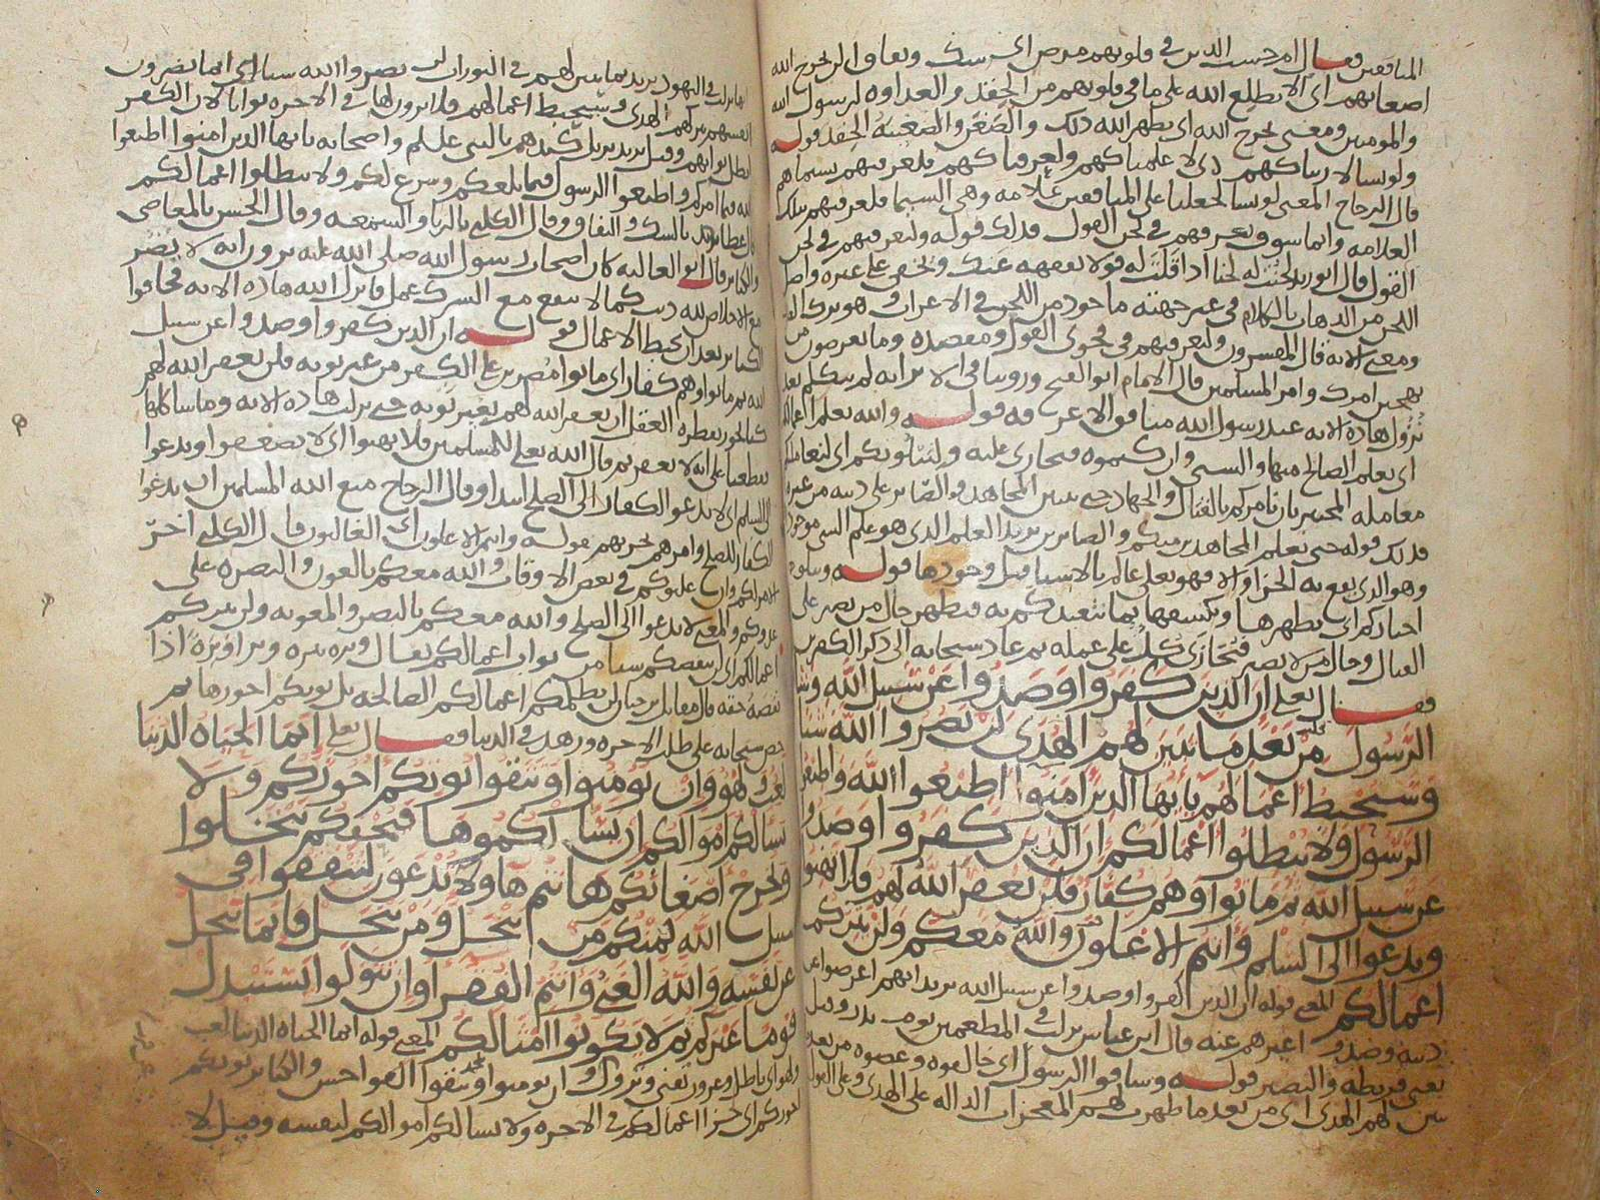 المنافقين فقال ام حسب الذين في قلوبهم مرض اي شك ونفاق ان لن يخرج الله
اضغانهم اي لا يطلع الله على ما في قلوبهم من الحقد والعداوه لرسول الله
والمومنين ومعنى يخرج الله اي يظهر الله ذلك والضغن والضغينة الحقد قوله
ولو نشا لاريناكهم اي لاعلمناكهم ولعرفناكهم فلعرفتهم بسيماهم
قال الزجاج المعنى لو نشا لجعلنا على المنافقين علامه وهي السيما فلعرفتهم بتلك
العلامه وانما سوف تعرفهم في لحن القول فذلك قوله ولتعرفنهم في لحن
القول قال ابو زيد لحنت له لحنا اذا قلت له قولا يفقهه عنك ويخفى على غيره
اللحن من الذهاب بالكلام في غير جهته ماخوذ من اللحن في الاعراب وهو
ومعنى الايه قال المفسرون ولتعرفنهم في فحوى القول ومقصده وما يعرضون من
تهجين امرك وامر المسلمين قال الامام ابو الفتح وروينا في لم يتكلم بعد
نزول هذه الايه عند رسول الله منافق الا عرفه قوله والله يعلم اعمالكم
معامله المختبر بان نامركم بالقتال والجهاد حتى المجاهد والصابر على دينه من غيره
فذلك قوله حتى نعلم المجاهدين منكم والصابرين يريد العلم الذي هو علم الشي موجودا
وهو الذي يقع به الجزا وهو تعلى عالم بالاشيا قبل وجودها قوله ونبلو
اخباركم اي نظهرها ونكشفها بما نتعبدكم به فيظهر حال من يصبر على
القتال وحال من لا يصبر كل على عمله ثم عاد سبحانه الى ذكر الكفرين
فقال تعلى ان الذين كفروا وصدوا عن سبيل الله وشاقوا
الرسول من بعد ما تبين لهم الهدى لن يضروا الله شيا
وسيحبط اعمالهم يايها الذين امنوا اطيعوا الله واطيعوا
الرسول ولا تبطلوا اعمالكم ان الذين كفروا وصدوا
عن سبيل الله ثم ماتوا وهم كفار فلن يغفر الله لهم فلا تهنوا
وتدعوا الى السلم وانتم الاعلون والله معكم ولن يتركم
اعمالكم المعنى قوله ان الذين كفروا وصدوا عن سبيل الله يريد انهم اعرضوا عن
دينه وصدوا غيرهم عنه قال ابن عباس نزلت في المطعمين يوم بدر وقيل
يعنى قريظه والنضير قوله وشاقوا الرسول اي خالفوه وعصوه من بعد
تبين لهم الهدى اي من بعد ما ظهرت لهم المعجزات الداله على الهدى وعلى القول
نزلت في اليهود يريد بما تبين لهم في التوراة لن يضروا الله شيا اي انما يضرون
انفسهم بتركهم الهدى وسيحبط اعمالهم فلا يرون لها في الاخره ثوابا لان الكفر
ابطل ثوابهم وقيل يريد كيدهم بالنبي واصحابه يايها الذين امنوا اطيعوا
الله فيما امركم واطيعوا الرسول فيما بلغكم وشرع لكم ولا تبطلوا اعمالكم
قال عطا يريد بالشك والنفاق وقال الكلبي بالريا والسمعه وقال الحسن بالمعاصي
والكباير قال ابو العاليه كان اصحاب رسول الله صلى الله عليه يرون انه لا يضر
مع الاخلاص لله ذنب كما لا ينفع مع الشرك عمل فانزل الله هذه الايه فخافوا
الكباير بعد ان تحبط الاعمال قوله ان الذين كفروا وصدوا عن سبيل
الله ثم ماتوا وهم كفار اي ماتوا مصرين على الكفر من غير توبه فلن يغفر الله لهم
نزلت هذه الايه وما شاكلها
قطعنا على انه لا يغفر ثم قال الله تعلى للمسلمين فلا تهنوا اي لا تضعفوا وتدعوا
الى السلم اي لا تدعوا الكفار الى الصلح ابتدا وقال الزجاج منع الله المسلمين ان يدعوا
الكفار الى الصلح وامرهم بحربهم قوله وانتم الاعلون اي الغالبون قال الكلبي اخر
الامر لكم وان غلبوكم في بعض الاوقات والله معكم بالعون والنصره على
عدوكم والمعنى لا تدعوا الى الصلح والله معكم بالنصر والمعونه ولن يتركم
اعمالكم اي لن ينقصكم شيا من ثواب اعمالكم يقال وتره يتره وترا وترة اذا
نقصه حقه قال مقاتل بن حيان لن يظلمكم اعمالكم الصالحه بل يوتيكم اجورها ثم
حض سبحانه على طلب الاخره وزهد في الدنيا فقال تعلى انما الحياه الدنيا
لعب ولهو وان تومنوا وتتقوا يوتكم اجوركم ولا
يسالكم اموالكم ان يسالكموها فيحفكم تبخلوا
ويخرج اضغانكم هاانتم هاولا تدعون لتنفقوا في
سبيل الله فمنكم من يبخل ومن يبخل فانما يبخل
عن نفسه والله الغني وانتم الفقرا وان تتولوا يستبدل
قوما غيركم ثم لا يكونوا امثالكم المعنى قوله انما الحياه الدنيا لعب
ولهو اي باطل وغرور يفنى ويزول وان تومنوا وتتقوا الفواحش والكباير يوتكم
اجوركم اي جزا اعمالكم في الاخره ولا يسالكم اموالكم لنفسه وقيل لا